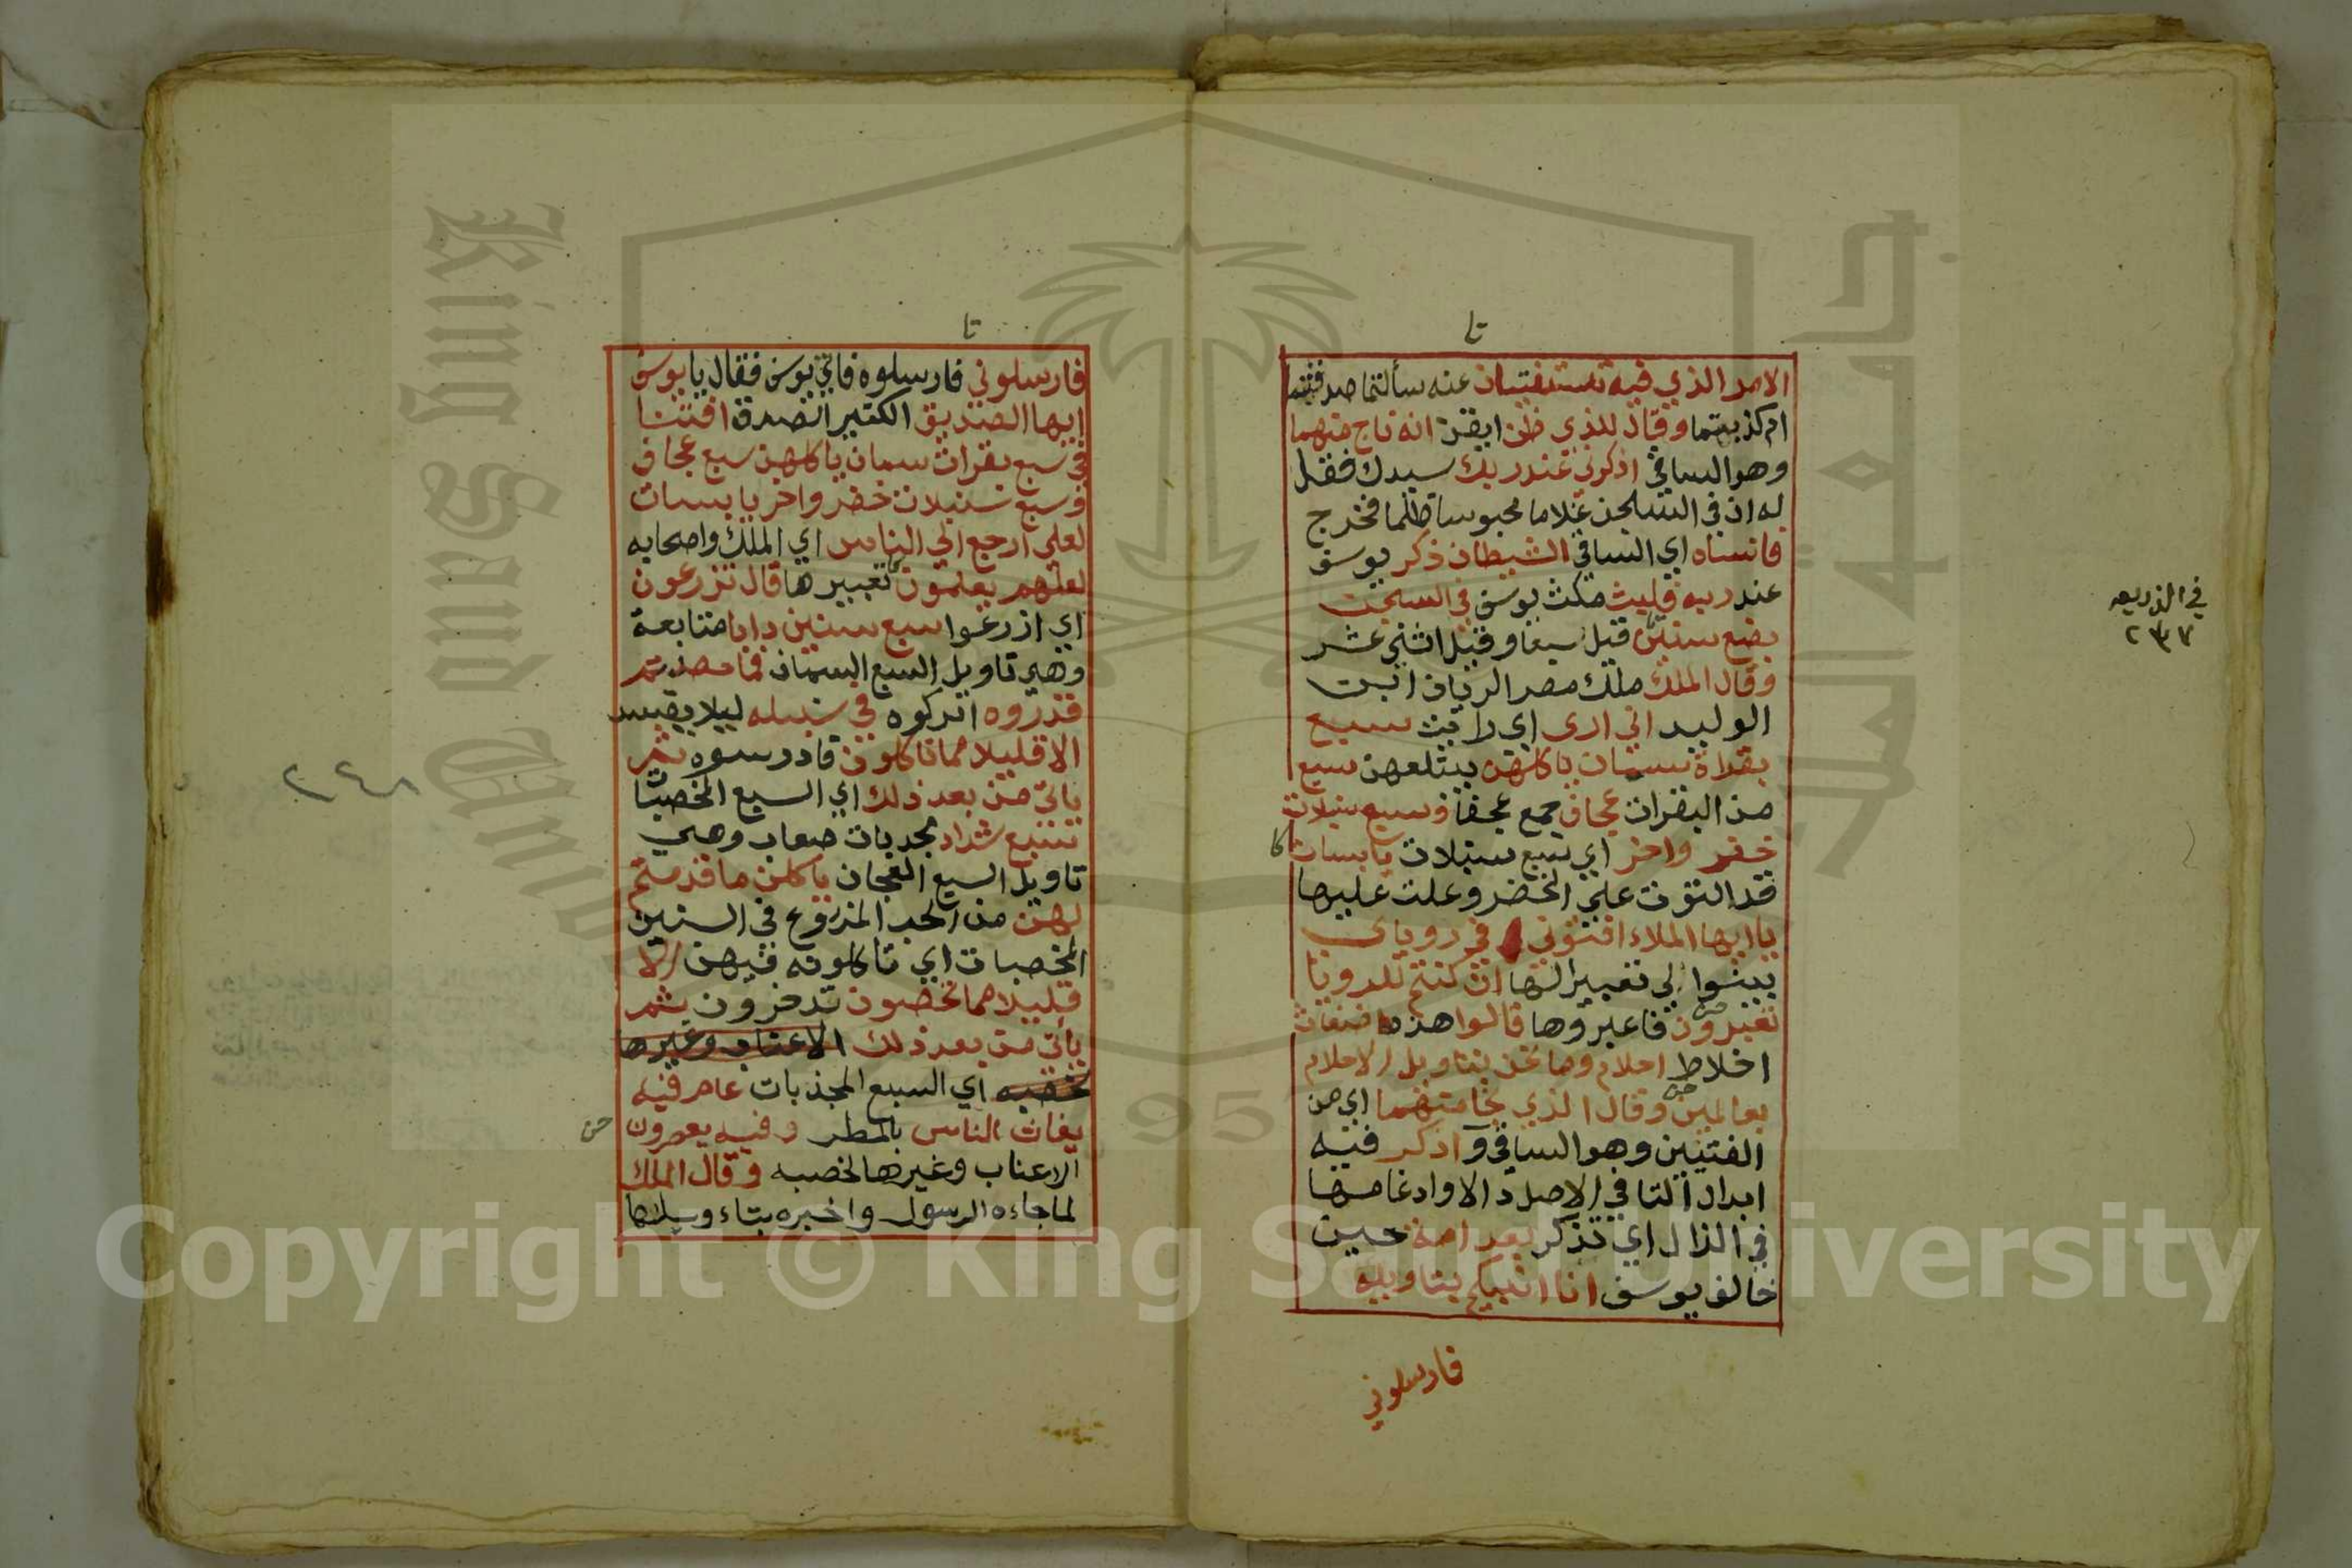 تا
الامر الذي فيه تستفتيان عنه سألتما صدقتما
ام كذبتما وقال للذي ظن ايقن انه ناج منهما
وهو الساقي اذكرني عند ربك سيدك فقل
له ان في السجن غلاما محبوسا ظلما فخرج
فانساه اي الساقي الشيطان ذكر يوسف
عند ربه فلبث مكث يوسف في السجن
بضع سنين قيل سبعا وقيل اثني عشر
وقال الملك ملك مصر الريان ابن
الوليد اني ارى اي رايت سبع
بقراة سمان ياكلهن يبتلعهن سبع
من البقرات عجاف جمع عجفا وسبع سنبلات
خضر واخر اي سبع سنبلات يابسات
قد التوت على الخضر وعلت عليها
يا ايها الملاء افتوني في روياي
بينوا لي تعبيرها ان كنتم للرويا
تعبرون فاعبروها قالوا هذه اضغاث
اخلاط احلام وما نحن بتاويل الاحلام
بعالمين وقال الذي نجا منهما اي من
الفتيين وهو الساقي وادكر فيه
ابدال التا في الاصل دالا وادغامها
في الذال اي تذكر بعد امة حين
خالف يوسف انا انبيكم بتاويله
فارسلوني
كا
في الذريعه
٢٣٧
تا
فارسلوني فارسلوه فاتى يوسف فقال يا يوسف
ايها الصديق الكثير الصدق افتنا
في سبع بقرات سمان ياكلهن سبع عجاف
وسبع سنبلات خضر واخر يابسات
لعلي ارجع الى الناس اي الملك واصحابه
لعلهم يعلمون تعبيرها قال تزرعون
اي ازرعوا سبع سنين دابا متتابعة
وهي تاويل السبع السمان فما حصدتم
فذروه اتركوه في سنبله ليلا يفسد
الا قليلا مما تاكلون فادرسوه ثم
ياتي من بعد ذلك اي السبع المخصبات
سبع شداد مجدبات صعاب وهي
تاويل السبع العجاف ياكلن ما قدمتم
لهن من الحب المزروع في السنين
المخصبات اي تاكلونه فيهن الا
قليلا مما تحصون تدخرون ثم
ياتي من بعد ذلك الاعناب وغيرها
لخصبه اي السبع المجذبات عام فيه
يغاث الناس بالمطر وفيه يعصرون
الاعناب وغيرها لخصبه وقال الملك
لما جاءه الرسول واخبره بتاءويلها
٢٤٨
Copyright © King Saud University
King Saud University
جامعة الملك
1957